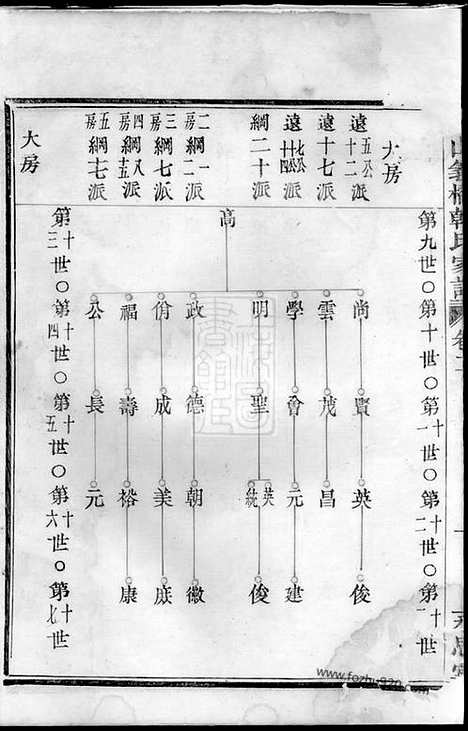 橋韓氏家譜
卷二
大房
遠五公十二派
遠十七派
遠七公十四派
綱二十派
二房綱一二派
三房綱七派
四房綱八十五派
五房綱七派
大房
第九世○第十世○第十一世○第十二世○第十
高
尚 賢 英 俊
雲 茂 昌
學 會 元 建
明 聖 英 統 俊
政 德 朝 徽
脩 成 美 庭
福 壽 裕 康
公 長 元
第十三世○第十四世○第十五世○第十六世○第十七世
www.fozhu920